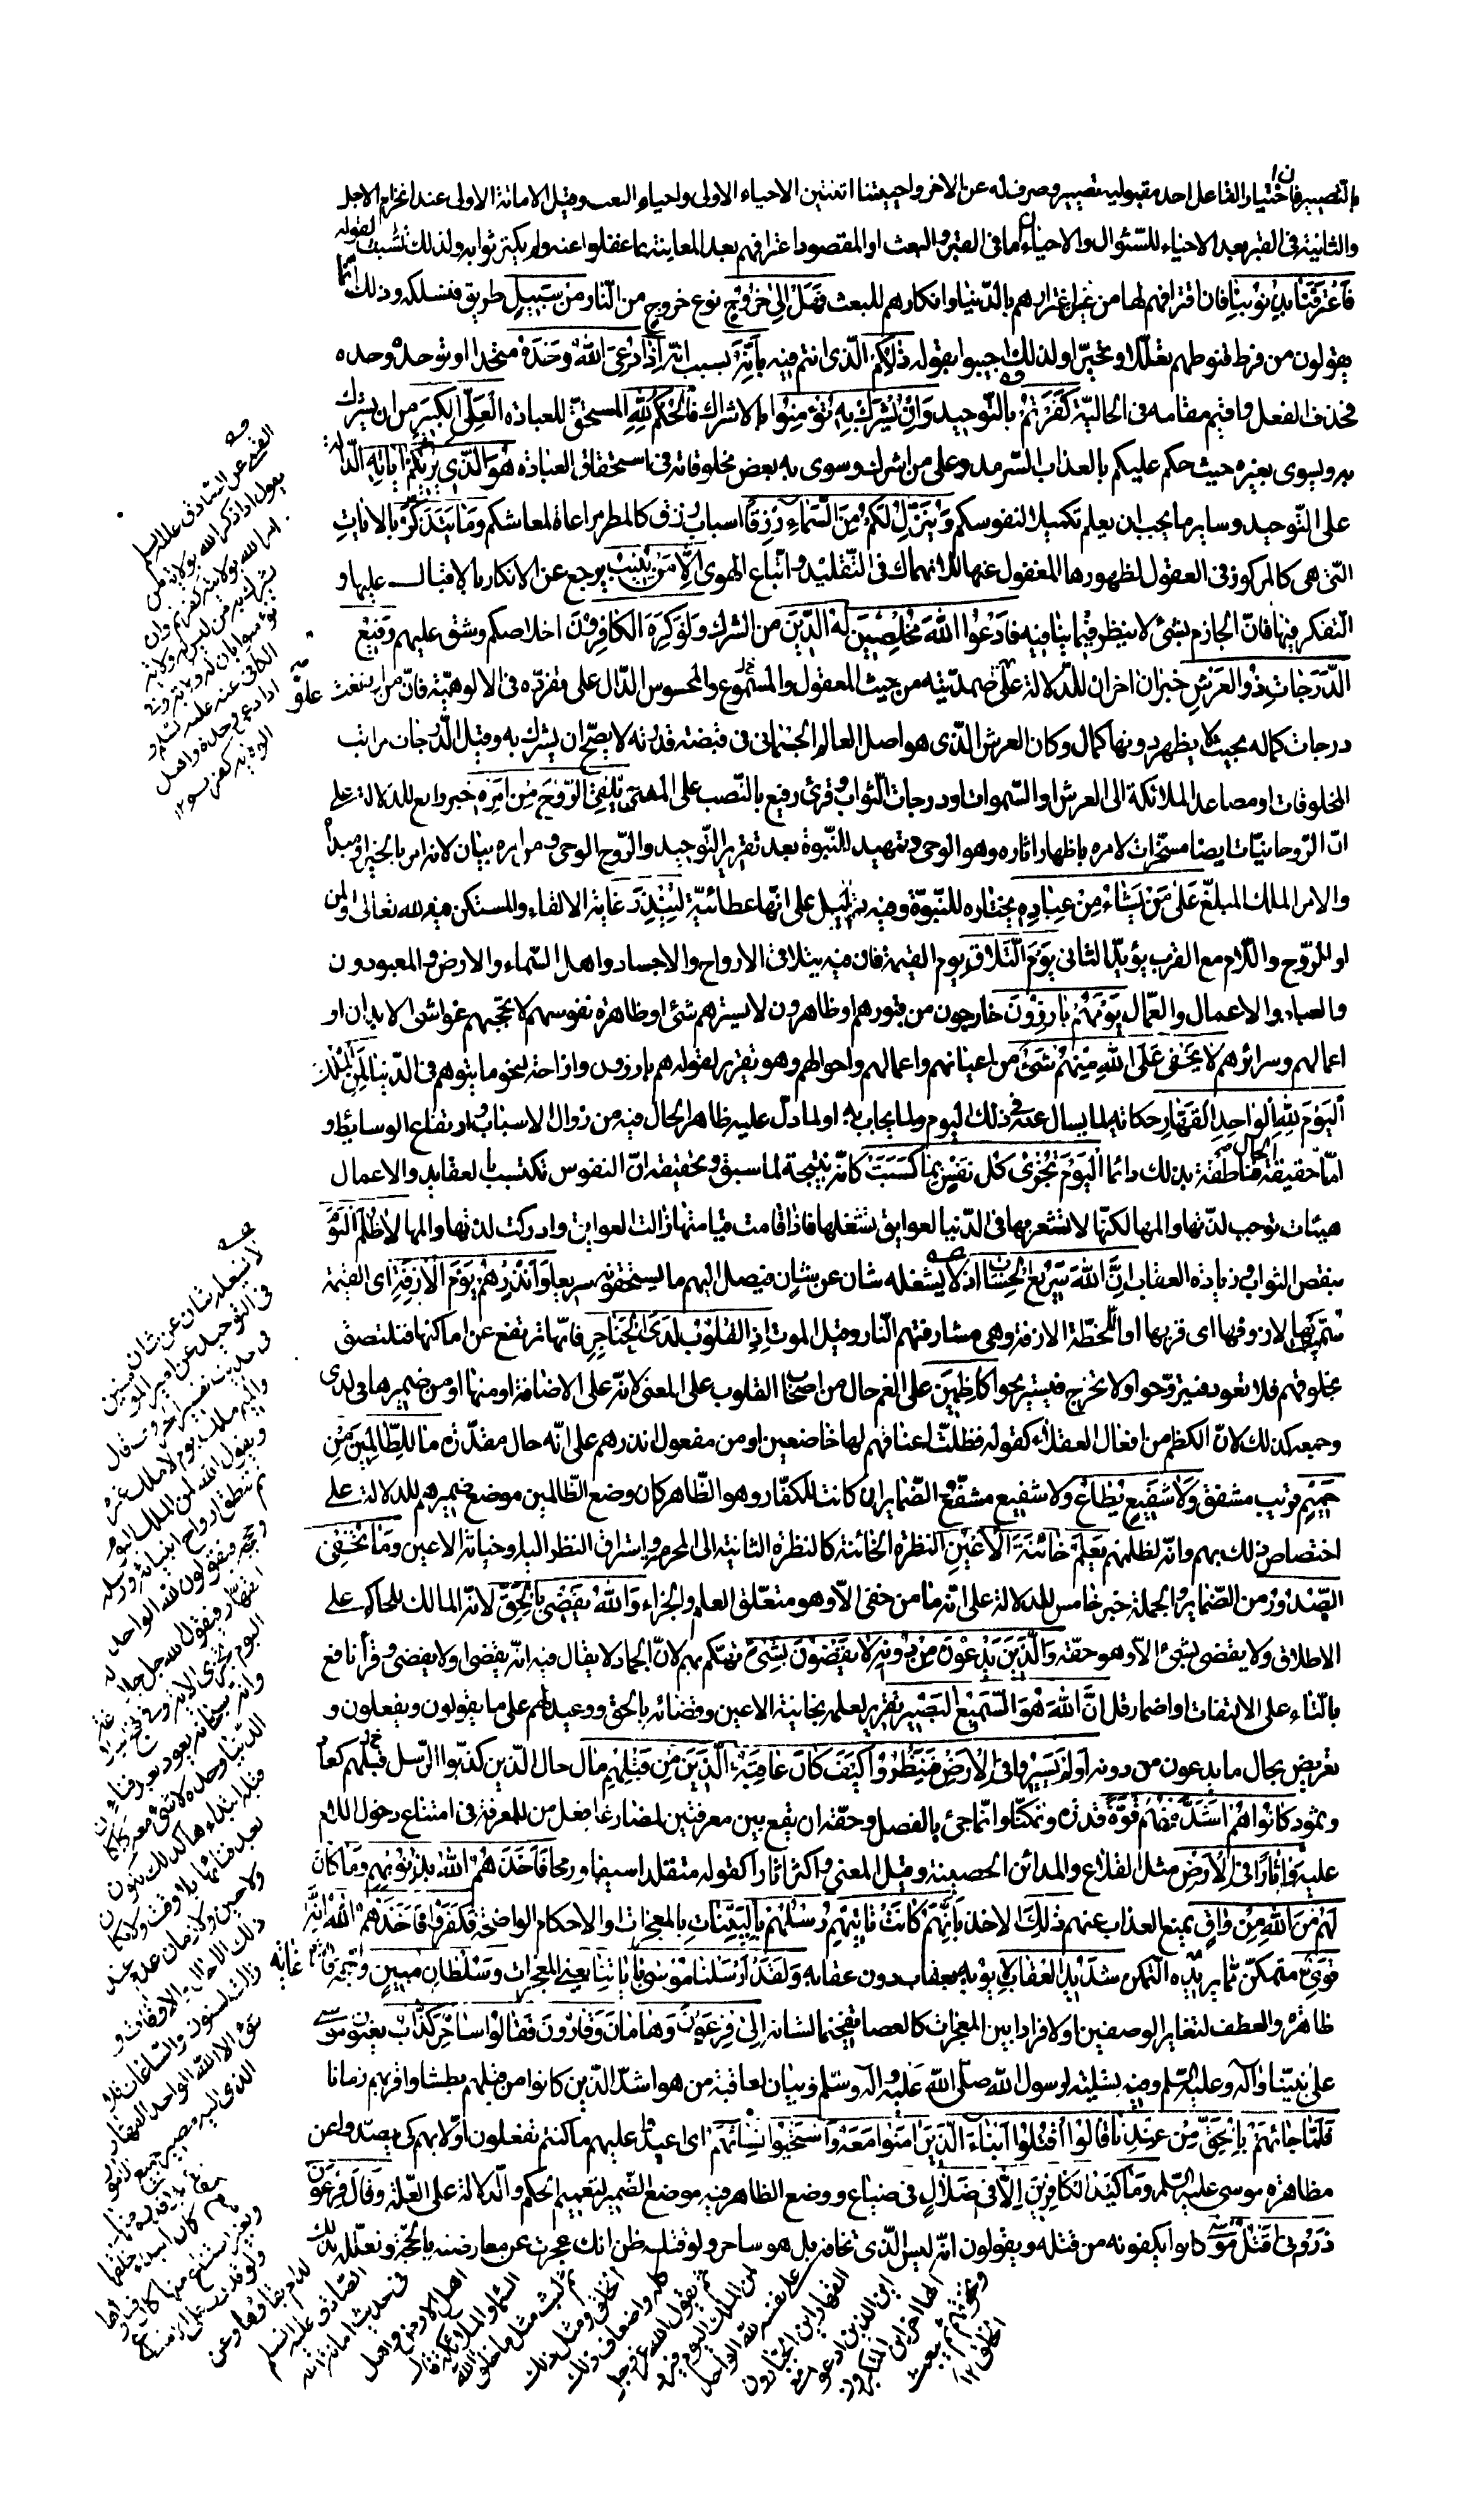 بالتصيير فاختيار الفاعل احد مقبوليه تصيير وصرف له عن الاخر واحييتنا اثنتين الاحياء الاولى واحياء البعث وقيل الاماتة الاولى عند انخرام الاجل
والثانية فى القبر بعد الاحياء للسّئوال والاحياءان ما فى القبر والبعث او المقصود اعترافهم بعد المعاينة بما غفلوا عنه ولم يكترثوا به ولذلك تسبّب لقوله
فَاعْتَرَفْنٰا بِذُنُوبِنٰا فان اقترافهم لها من اغترارهم بالدّنيا وانكارهم للبعث فَهَلْ اِلىٰ خُرُوجٍ نوع خروج من النّار مِنْ سَبِيلٍ طريق فنسلكه وذلك انّما
يقولون من فرط قنوطهم تعلّلا وتحيّرا ولذلك اجيبوا بقوله ذٰلِكُمْ الّذى انتم فيه بِاَنَّهُ بسبب انّه اِذٰا دُعِىَ اللّٰهُ وَحْدَهُ متحدا او توحد وحده
فحذف الفعل واقيم مقامه فى الحاليّة كَفَرْتُمْ بالتّوحيد وَاِنْ يُشْرَكْ بِهِ تُؤْمِنُوا بالاشراك فَالْحُكْمُ لِلّٰهِ المستحقّ للعبادة الْعَلِىِّ الْكَبِيرِ من ان يشرك
به ويسوى بغيره حيث حكم عليكم بالعذاب السّرمد وعلى من اشرك وسوى به بعض مخلوقاته فى استحقاق العبادة هُوَ الَّذِى يُرِيكُمْ اٰيٰاتِهِ الدّالة
على التّوحيد وساير ما يجب ان يعلم تكميلا لنفوسكم وَيُنَزِّلُ لَكُمْ مِنَ السَّمٰاءِ رِزْقًا اسباب رزق كالمطر مراعاة لمعاشكم وَمٰا يَتَذَكَّرُ بالايات
التى هى كالمركوز فى العقول لظهورها المغفول عنها للانهماك فى التّقليد واتّباع الهوى اِلّٰا مَنْ يُنِيبُ يرجع عن الانكار بالاقبال عليها و
التفكر فيها فانّ الجازم بشئ لا ينظر فيما ينافيه فَادْعُوا اللّٰهَ مُخْلِصِينَ لَهُ الدِّينَ من الشرك وَلَوْ كَرِهَ الْكٰافِرُونَ اخلاصكم وشق عليهم رَفِيعُ
الدَّرَجٰاتِ ذُو الْعَرْشِ خبران اخران للدّلالة على صمديّته من حيث المعقول والمحسوس الدّال على تفرّده فى الالوهيّة فانّ من ارتفعت
درجات كماله بحيث لا يظهر دونها كمال وكان العرش الّذى هو اصل العالم الجسمانى فى قبضة قدرته لا يصحّ ان يشرك به وقيل الدّرجات مراتب
المخلوقات او مصاعد الملائكة الى العرش او السّموات او درجات الثّواب وقرئ رفيع بالنّصب على المدح يُلْقِى الرُّوحَ مِنْ اَمْرِهِ خبر رابع للدلالة على
انّ الرّوحانيّات ايضا مسخّرات لامره باظهار اثاره وهو الوحى وتمهيد للنّبوة بعد تقرير التّوحيد والرّوح الوحى ومن امره بيان لانه امر بالخير او مبدأه
والامر الملك المبلّغ عَلىٰ مَنْ يَشٰاءُ مِنْ عِبٰادِهِ يختاره للنّبوّة وفيه دليل على انّها عطائيّة لِيُنْذِرَ غاية الالقاء والمستكن فيه لله تعالى او لمن
او للرّوح واللّام مع القرب يؤيّد الثانى يَوْمَ التَّلٰاقِ يوم القيمة فان فيه يتلاقى الارواح والاجساد واهل السّماء والارض والمعبودون
والعباد او الاعمال والعمّال يَوْمَ هُمْ بٰارِزُونَ خارجون من قبورهم او ظاهرون لا يسترهم شئ او ظاهرة نفوسهم لا تحجبهم غواشى الابدان او
اعمالهم وسرائرهم لٰا يَخْفىٰ عَلَى اللّٰهِ مِنْهُمْ شَيْءٌ من اعيانهم واعمالهم واحوالهم وهو تقرير لقوله هم بارزون وازاحة لنحو ما يتوهم فى الدّنيا لِمَنِ الْمُلْكُ
اَلْيَوْمَ لِلّٰهِ الْوٰاحِدِ الْقَهّٰارِ حكاية لما يسال عنه فى ذلك اليوم ولما يجاب به او لما دلّ عليه ظاهر الحال فيه من زوال الاسباب وارتفاع الوسائط و
امّا حقيقة الحال فناطقة بذلك دائما اَلْيَوْمَ تُجْزىٰ كُلُّ نَفْسٍ بِمٰا كَسَبَتْ كانّه نتيجة لما سبق وتحقيقه انّ النفوس تكتسب بالعقايد والاعمال
هيئات توجب لذّتها والمها لكنّها لا تشعر بها فى الدّنيا لعوايق تشغلها فاذا قامت قيامتها زالت العوائق وادركت لذتها والمها لٰا ظُلْمَ الْيَوْمَ
بنقص الثواب وزيادة العقاب اِنَّ اللّٰهَ سَرِيعُ الْحِسٰابِ اذ لا يشغله شان عن شان فيصل اليهم ما يستحقونه سريعا وَاَنْذِرْهُمْ يَوْمَ الْاٰزِفَةِ اى القيمة
سمّيت بها لازوفها اى قربها او الخطّة الازفة وهى مشارفتهم النّار وقيل الموت اِذِ الْقُلُوبُ لَدَى الْحَنٰاجِرِ فانّها ترتفع عن اماكنها فتلتصق
بحلوقهم فلا تعود فيتروّحوا ولا تخرج فيستريحوا كٰاظِمِينَ على الغم حال من اصحاب القلوب على المعنى لانّه على الاضافة او منها او من ضميرها فى لدى
وجمعه كذلك لانّ الكظم من افعال العقلاء كقوله فظلّت اعناقهم لها خاضعين او من مفعول انذرهم على انّه حال مقدّرة مٰا لِلظّٰالِمِينَ مِنْ
حَمِيمٍ قريب مشفق وَلٰا شَفِيعٍ يُطٰاعُ ولا شفيع مشفّع الضّماير ان كانت للكفّار وهو الظّاهر كان وضع الظّالمين موضع ضميرهم للدلالة على
اختصاص ذلك بهم وانّه لظلمهم يَعْلَمُ خٰائِنَةَ الْاَعْيُنِ النظرة الخائنة كالنظرة الثانية الى المحرم واستراق النظر اليه او خيانة الاعين وَمٰا تُخْفِى
الصُّدُورُ من الضّماير والجملة خبر خامس للدلالة على انّه ما من خفى الّا وهو متعلّق العلم والجزاء وَاللّٰهُ يَقْضِى بِالْحَقِّ لانّه المالك الحاكم على
الاطلاق ولا يقضى بشئ الّا وهو حقّه وَالَّذِينَ يَدْعُونَ مِنْ دُونِهِ لٰا يَقْضُونَ بِشَيْءٍ تهكّم بهم لانّ الجماد لا يقال فيه انّه يقضى ولا يقضى وقرأ نافع
بالتّاء على الالتفات او اضمار قل اِنَّ اللّٰهَ هُوَ السَّمِيعُ الْبَصِيرُ تقرير لعلمه بخائنة الاعين وقضائه بالحق ووعيد لهم على ما يقولون ويفعلون و
تعريض بحال ما يدعون من دونه اَوَلَمْ يَسِيرُوا فِى الْاَرْضِ فَيَنْظُرُوا كَيْفَ كٰانَ عٰاقِبَةُ الَّذِينَ مِنْ قَبْلِهِمْ مال حال الّذين كذّبوا الرّسل قبلهم كعاد
وثمود كٰانُوا هُمْ اَشَدَّ مِنْهُمْ قُوَّةً قدرة وتمكّنا وانّما جئ بالفصل وحقّه ان يقع بين معرفتين لمضارعة افعل من للمعرفة فى امتناع دخول اللام
عليه وَاٰثٰارًا فِى الْاَرْضِ مثل القلاع والمدائن الحصينة وقيل المعنى واكثر اثارا كقوله متقلدا سيفا ورمحا فَاَخَذَهُمُ اللّٰهُ بِذُنُوبِهِمْ وَمٰا كٰانَ
لَهُمْ مِنَ اللّٰهِ مِنْ وٰاقٍ يمنع العذاب عنهم ذٰلِكَ الاخذ بِاَنَّهُمْ كٰانَتْ تَأْتِيهِمْ رُسُلُهُمْ بِالْبَيِّنٰاتِ بالمعجزات والاحكام الواضحة فَكَفَرُوا فَاَخَذَهُمُ اللّٰهُ اِنَّهُ
قَوِىٌّ متمكّن ممّا يريده غاية التّمكن شَدِيدُ الْعِقٰابِ لا يؤبه بعقاب دون عقابه وَلَقَدْ اَرْسَلْنٰا مُوسىٰ بِاٰيٰاتِنٰا يعنى المعجزات وَسُلْطٰانٍ مُبِينٍ وحجة قاهرة
ظاهرة والعطف لتغاير الوصفين او لافراد بعض المعجزات كالعصا تفخيما لشانه اِلىٰ فِرْعَوْنَ وَهٰامٰانَ وَقٰارُونَ فَقٰالُوا سٰاحِرٌ كَذّٰابٌ يعنون موسى
على نبيّنا وآله وعليه السّلم وفيه تسلية لرسول اللّه صلّى اللّه عليه وآله وسلّم وبيان لعاقبة من هو اشدّ الّذين كانوا من قبلهم بطشا واقربهم زمانا
فَلَمّٰا جٰاءَهُمْ بِالْحَقِّ مِنْ عِنْدِنٰا قٰالُوا اقْتُلُوا اَبْنٰاءَ الَّذِينَ اٰمَنُوا مَعَهُ وَاسْتَحْيُوا نِسٰاءَهُمْ اى اعيدوا عليهم ما كنتم تفعلون اوّلا بهم كى يصدّوا عن
مظاهرة موسى عليه السّلم وَمٰا كَيْدُ الْكٰافِرِينَ اِلّٰا فِى ضَلٰالٍ فى ضياع ووضع الظاهر فيه موضع الضّمير لتعميم الحكم والدّلالة على العلّة وَقٰالَ فِرْعَوْنُ
ذَرُونِى اَقْتُلْ مُوسىٰ كانوا يكفونه من قتله ويقولون انّه ليس الّذى تخافه بل هو ساحر ولو قتلته ظن انك عجزت عن معارضته بالحجّة وتعلّله بذلك
القمى عن الصّادق عليه السلم
يقول اذا ذكر الله بولاية من
امر الله بولايته كفرتم وان
يشرك به من ليس له ولاية
تؤمنوا بان له ولاية وفى
الكافى عنه عليه السلم
اذا دعى الله وحده واهل
الولاية كفرتم ١٢
لا يشغله شان عن شان
فى التوحيد عن امير المؤمنين
فى حديث تفسير احرف قال
والميم ملك يوم لا مالك غيره
ويقول الله لمن الملك اليوم
ثم تنطق ارواح انبيائه ورسله
وحججه فيقولون لله الواحد
القهار فيقول الله جل جلاله
اليوم تجزى الاية وفى نهج
وانه سبحانه يعود بعد فناء
الدّنيا وحده لا شئ معه كما كان
قبل ابتدائها كذلك يكون
بعد فنائها بلا وقت ولا مكان
ولا حين ولا زمان عدمت عند
ذلك الاجال والاوقات و
زالت السنون والسّاعات فلا
شئ الا الله الواحد القهار
الذى اليه مصير جميع الامور
بلا قدرة منها كان ابتداء خلقها
وبغير امتناع منها كان فناؤها
ولو قدرت على الامتناع
لدام بقاؤها وعن
الصّادق عليه السلم
فى حديث اماتة الله
اهل الارض واهل
السّماء والملائكة قال
ثم لبث مثل ما خلق الله
الخلق ومثل ذلك
كله واضعاف ذلك
ثم يقول الله عز وجل
لمن الملك اليوم فيرد
على نفسه لله الواحد
القهار اين الجبارون
اين الذين ادعوا معى
الها اخر اين المتكبرون
ونحوهم ثم يبعث
الخلق ١٢